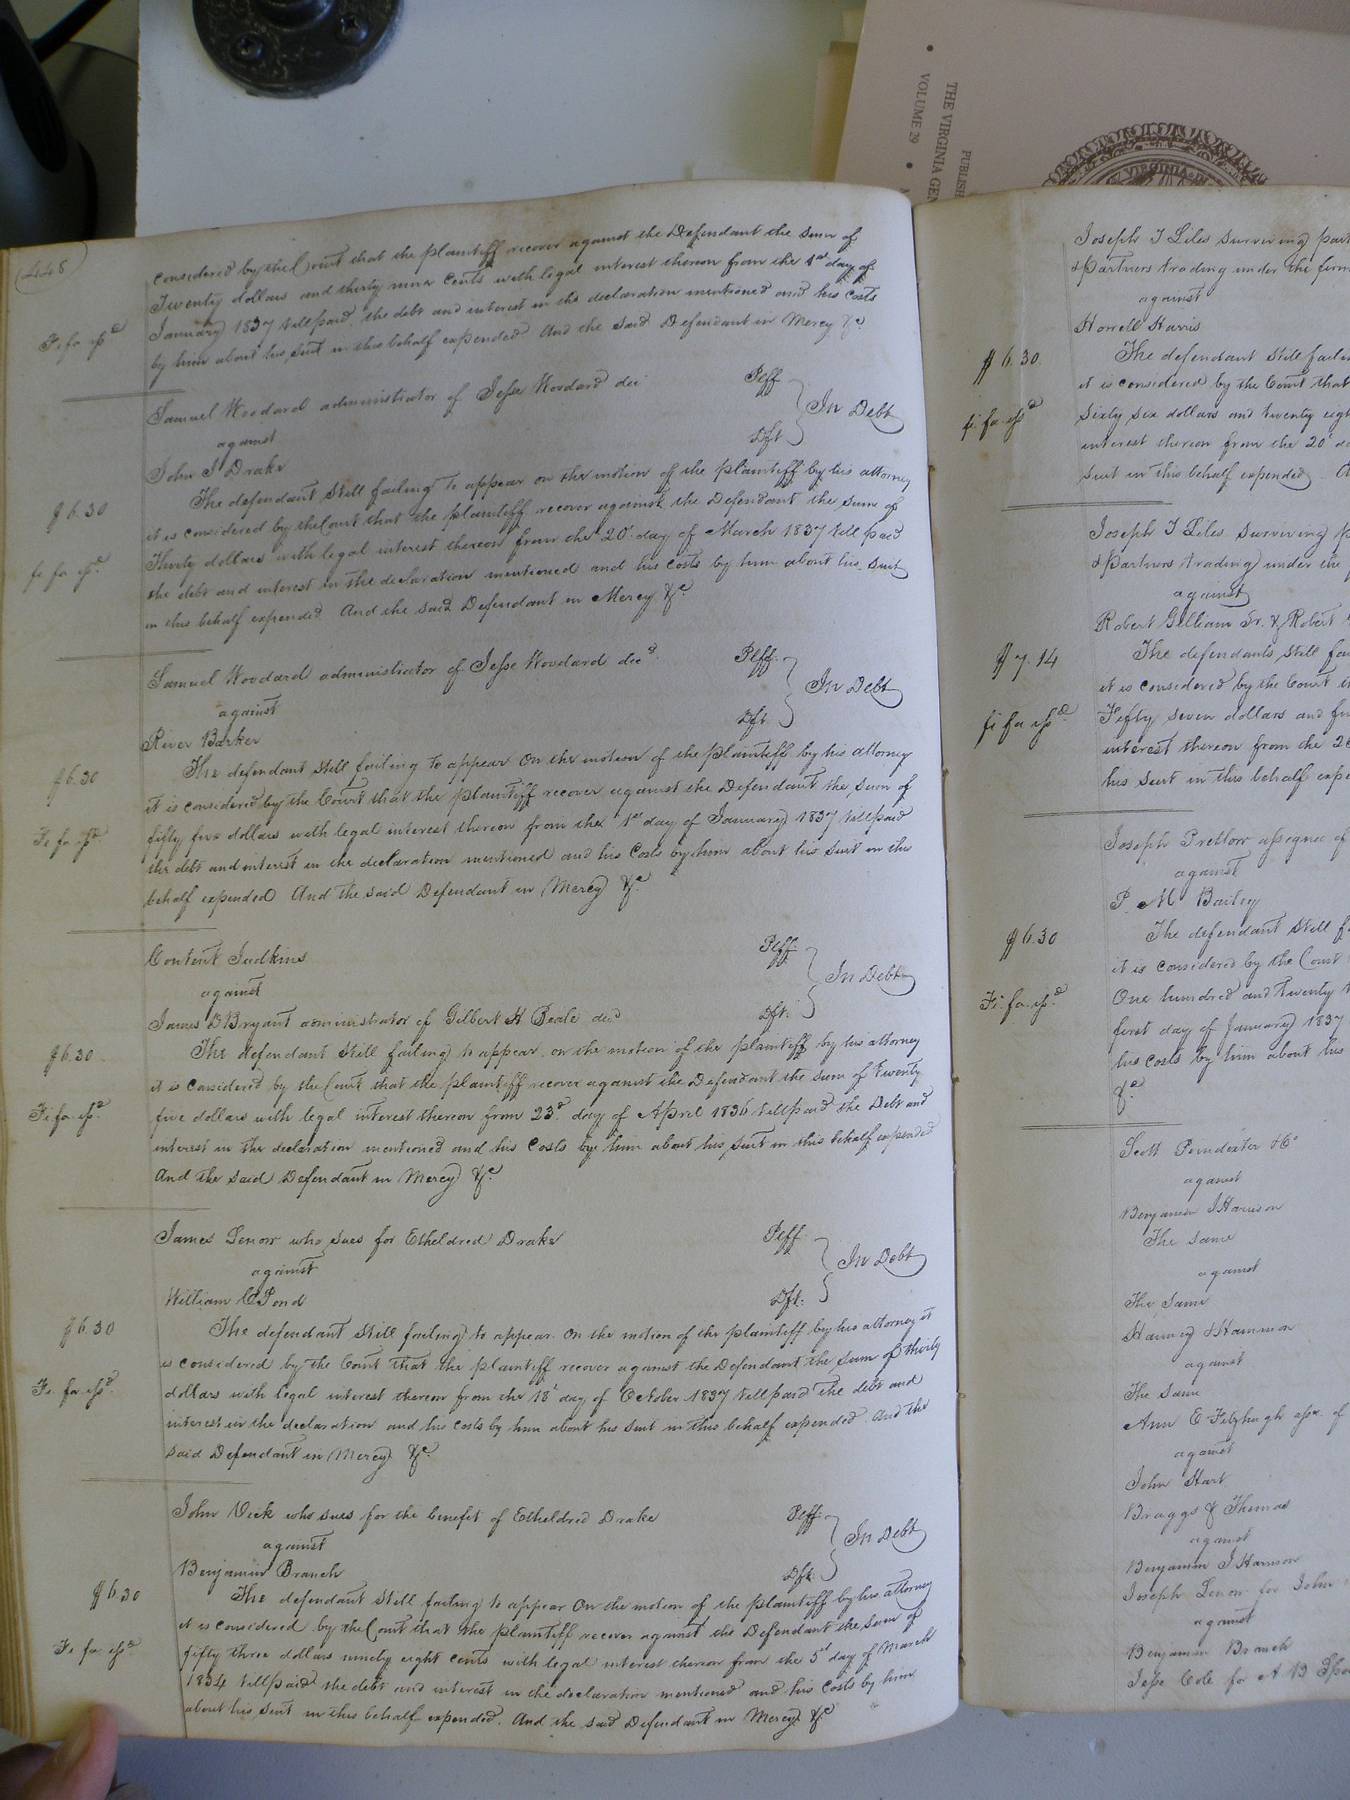 THE VIRGINIA GEN
VOLUME 29
PUBLISH
VIRGINIA
448
considered by the Court that the plaintiff recover against the Defendant the sum of
Twenty dollars and thirty nine cents with legal interest thereon from the 1st day of
January 1837 till paid, the debt and interest in the declaration mentioned and his Costs
Fi fa issd
by him about his suit in this behalf expended And the said Defendant in Mercy &c
Samuel Woodard administrator of Jesse Woodard dec
Plff
against
In Debt
John J Drake
Dft
The defendant still failing to appear on the motion of the plaintiff by his attorney
$6.30
it is considered by the Court that the plaintiff recover against the Defendant the sum of
Thirty dollars with legal interest thereon from the 20t day of March 1837 till paid
fi fa issd
the debt and interest in the declaration mentioned and his Costs by him about his suit
in this behalf expended And the said Defendant in Mercy &c
Samuel Woodard administrator of Jesse Woodard decd
Plff
against
In Debt
River Barker
Dft
The defendant still failing to appear On the motion of the plaintiff by his attorney
$6.30
it is considered by the Court that the plaintiff recover against the Defendant the sum of
fifty five dollars with legal interest thereon from the 1st day of January 1837 till paid
Fi fa issd
the debt and interest in the declaration mentioned and his Costs by him about his suit in this
behalf expended And the said Defendant in Mercy &c
Content Judkins
Plff
against
In Debt
James D Bryant administrator of Gilbert H Beale decd
Dft.
The defendant still failing to appear on the motion of the plaintiff by his attorney
$6.30
it is considered by the Court that the plaintiff recover against the Defendant the sum of twenty
five dollars with legal interest thereon from 23d day of April 1836 till paid the Debt and
Fi fa issd
interest in the declaration mentioned and his Costs by him about his suit in this behalf expended
And the said Defendant in Mercy &c
James Lenow who sues for Etheldred Drake
Plff
against
In Debt
William C Pond
Dft.
The defendant still failing to appear On the motion of the plaintiff by his attorney it
$6.30
is considered by the Court that the plaintiff recover against the Defendant the sum of thirty
dollars with legal interest thereon from the 18t day of October 1837 till paid the debt and
Fi. fa issd
interest in the declaration and his costs by him about his suit in this behalf expended And the
said Defendant in Mercy &c
John Vick who sues for the benefit of Etheldred Drake
Plff
against
In Debt
Benjamin Branch
Dft.
The defendant still failing to appear On the motion of the plaintiff by his attorney
$6.30
it is considered by the Court that the plaintiff recover against the Defendant the sum of
fifty three dollars ninety eight cents with legal interest thereon from the 5t day of March
Fi fa issd
1834 till paid the debt and interest in the declaration mentioned and his Costs by him
about his suit in this behalf expended. And the said Defendant in Mercy &c
Joseph T Liles surviving part
& Partners trading under the firm
against
Horrell Harris
The defendant still failin
$6.30
it is considered by the Court that
fi fa issd
Sixty six dollars and twenty eigh
interest thereon from the 20t da
suit in this behalf expended
Joseph T Liles surviving p
& Partners trading under the
against
Robert Gilliam Sr. & Robert
$7.14
The defendants still fa
it is considered by the Court t
fi fa issd
Fifty seven dollars and fu
interest thereon from the 2
his suit in this behalf expe
Joseph Pretlow assignee of
against
P. M Bailey
$6.30
The defendant still f
it is considered by the Court
Fi. fa. issd
One hundred and twenty
first day of January 1837
his costs by him about his
&c
Scott Poindexter & Co
against
Benjamin J Harrison
The same
against
The Same
Hanney & Hammon
against
The Same
Ann E Fitzhugh asse. of
against
John Hart
Braggs & Thomas
against
Benjamin J Harrison
Joseph Lenow for John
against
Benjamin Branch
Jesse Cole for A B Spo